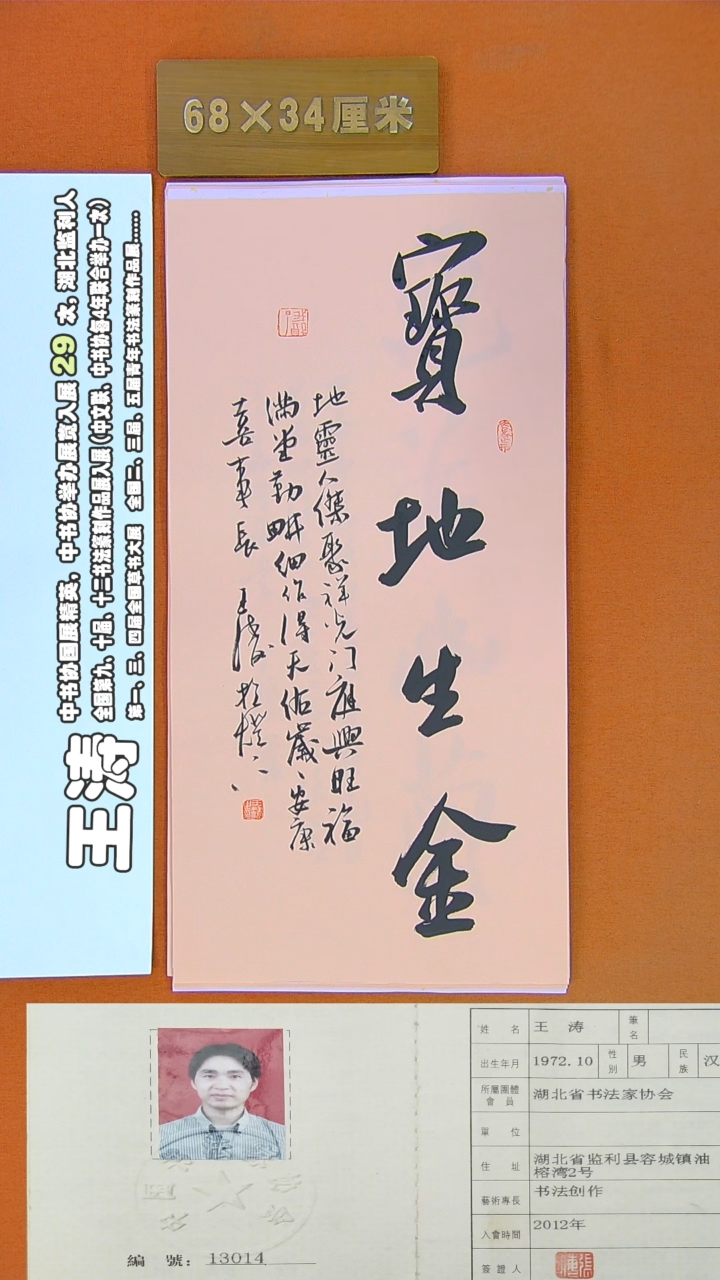 68×34厘米
王涛
中书协国展精英，中书协举办展赛入展 29 次，湖北监利人
全国第九、十届、十二书法篆刻作品展入展（中文联、中书协暂4年联合举办一次）
第一、三、四届全国草书大展 全国二、三届、五届青年书法篆刻作品展......
寶地生金
地靈人傑聚祥光门庭興旺福
满堂勤畊细作得天佑歲、安康
喜事長 王涛
姓 名 王 涛 筆名
出生年月 1972.10 性别 男 民族 汉
所屬團體會員 湖北省书法家协会
單 位
住 址 湖北省监利县容城镇油榕湾2号
藝術專長 书法创作
入會時間 2012年
簽證人
編 號：13014